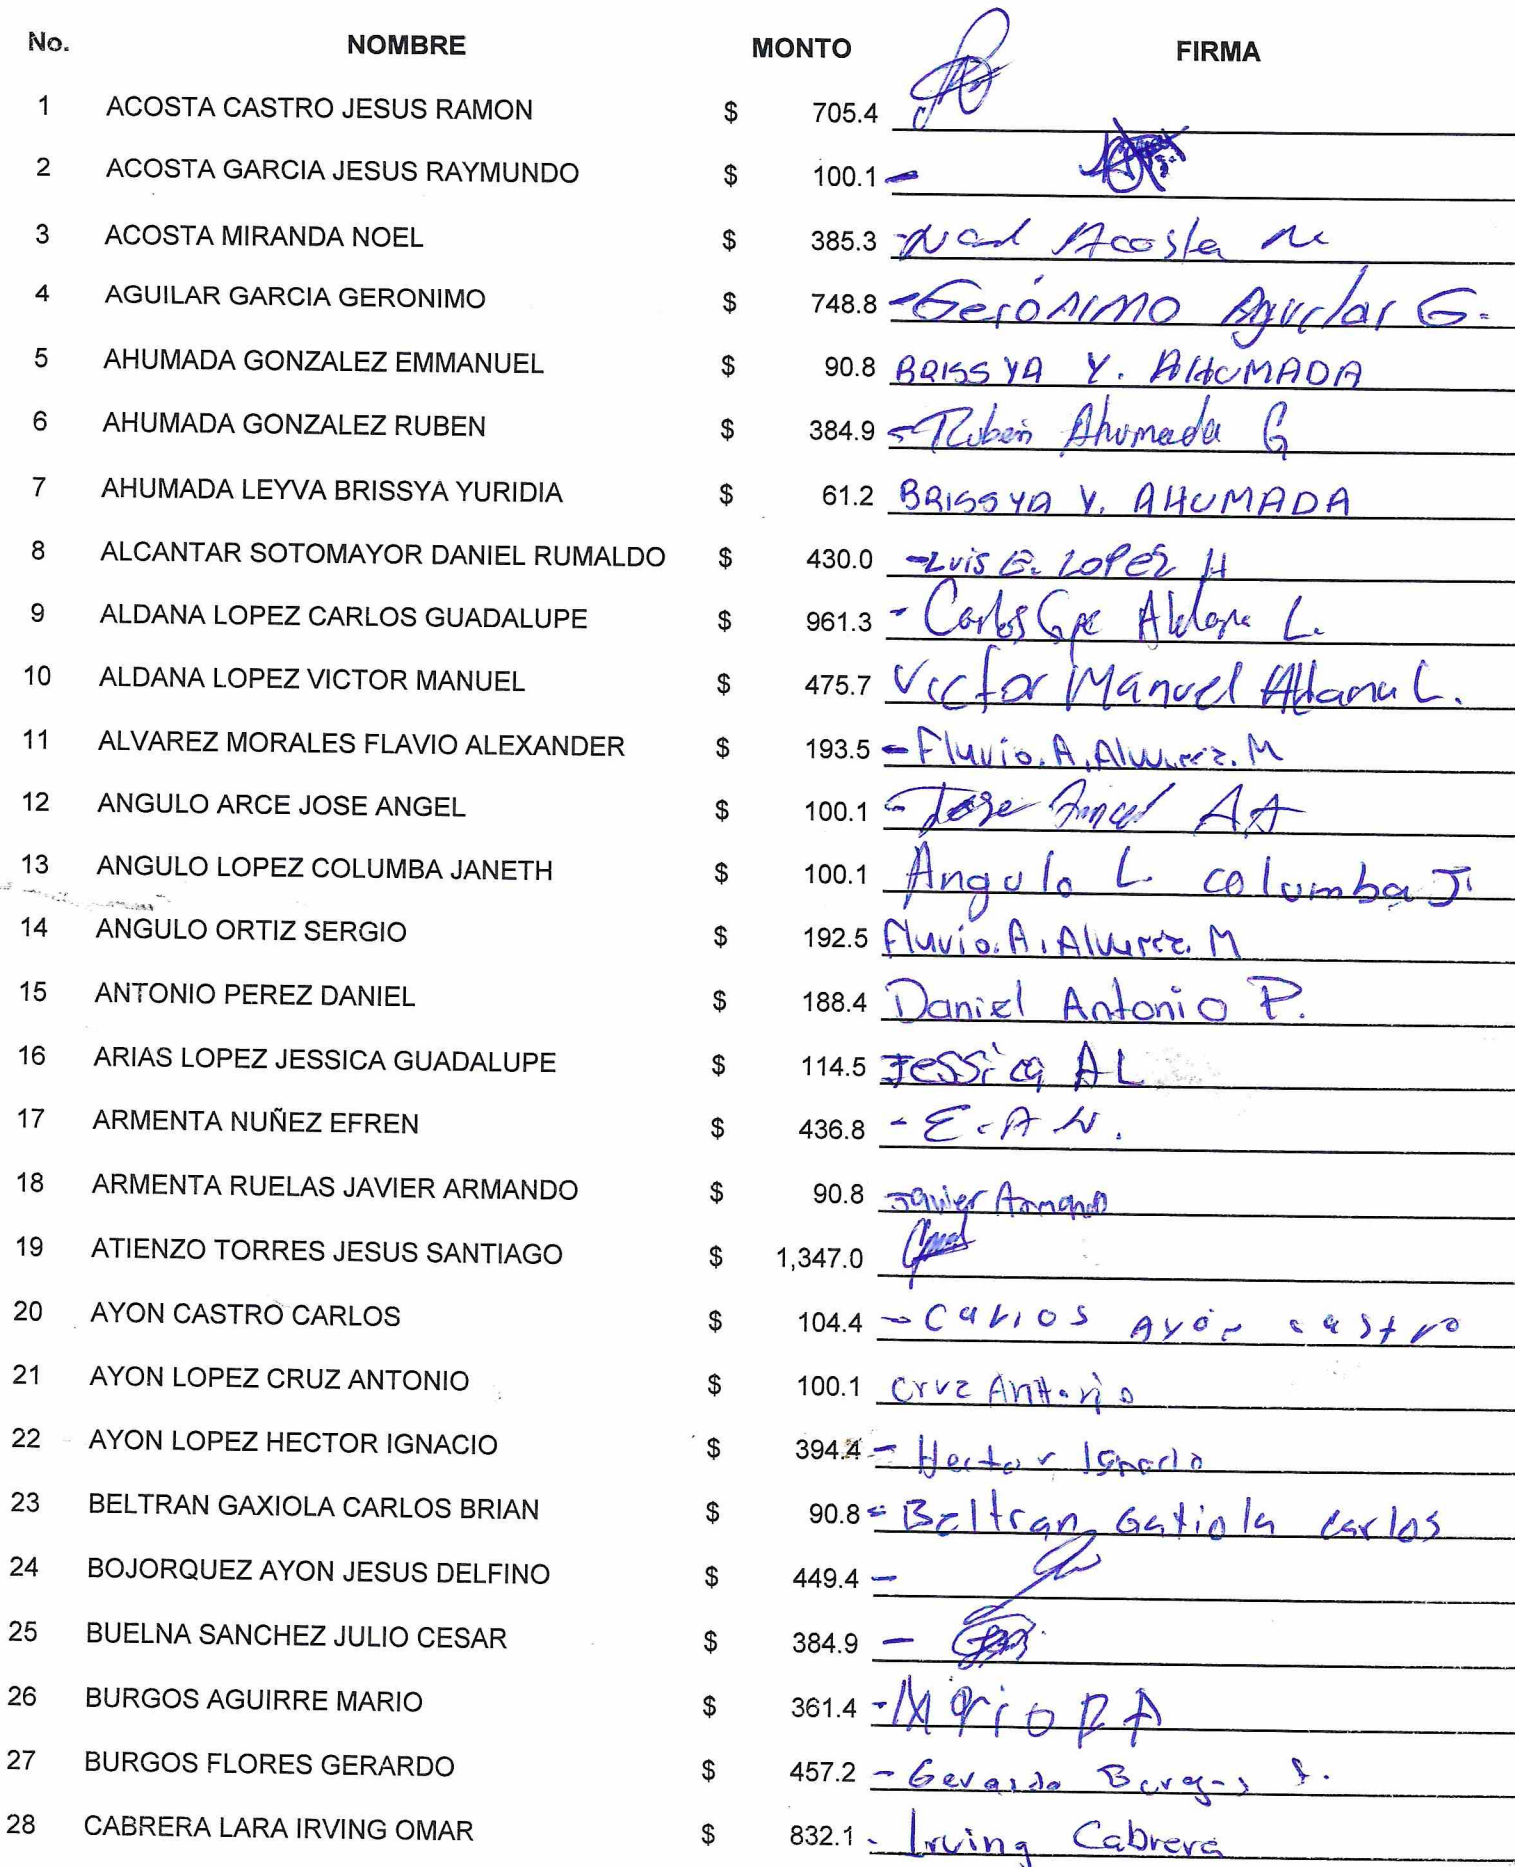 No. NOMBRE MONTO FIRMA
1 ACOSTA CASTRO JESUS RAMON $ 705.4
2 ACOSTA GARCIA JESUS RAYMUNDO $ 100.1 -
3 ACOSTA MIRANDA NOEL $ 385.3 - Acosta
4 AGUILAR GARCIA GERONIMO $ 748.8 - Gerónimo Aguilar G.
5 AHUMADA GONZALEZ EMMANUEL $ 90.8 BRISSYA Y. AHUMADA
6 AHUMADA GONZALEZ RUBEN $ 384.9 - Ruben Ahumada G
7 AHUMADA LEYVA BRISSYA YURIDIA $ 61.2 BRISSYA Y. AHUMADA
8 ALCANTAR SOTOMAYOR DANIEL RUMALDO $ 430.0 - Luis E. LOPEZ H
9 ALDANA LOPEZ CARLOS GUADALUPE $ 961.3 - Carlos Gpe Aldana L.
10 ALDANA LOPEZ VICTOR MANUEL $ 475.7 Victor Manuel Aldana L.
11 ALVAREZ MORALES FLAVIO ALEXANDER $ 193.5 - Flavio. A. Alvarez. M
12 ANGULO ARCE JOSE ANGEL $ 100.1 - Jose Angel AA
13 ANGULO LOPEZ COLUMBA JANETH $ 100.1 Angulo L. columba J.
14 ANGULO ORTIZ SERGIO $ 192.5 Flavio. A. Alvarez. M
15 ANTONIO PEREZ DANIEL $ 188.4 Daniel Antonio P.
16 ARIAS LOPEZ JESSICA GUADALUPE $ 114.5 Jessica AL
17 ARMENTA NUÑEZ EFREN $ 436.8 - E. A N.
18 ARMENTA RUELAS JAVIER ARMANDO $ 90.8 Javier Armando
19 ATIENZO TORRES JESUS SANTIAGO $ 1,347.0
20 AYON CASTRO CARLOS $ 104.4 - Carlos Ayón castro
21 AYON LOPEZ CRUZ ANTONIO $ 100.1 Cruz Antonio
22 AYON LOPEZ HECTOR IGNACIO $ 394.4 - Hector Ignacio
23 BELTRAN GAXIOLA CARLOS BRIAN $ 90.8 - Beltran Gaxiola Carlos
24 BOJORQUEZ AYON JESUS DELFINO $ 449.4 -
25 BUELNA SANCHEZ JULIO CESAR $ 384.9 -
26 BURGOS AGUIRRE MARIO $ 361.4 - Mario B A
27 BURGOS FLORES GERARDO $ 457.2 - Gerardo Burgos F.
28 CABRERA LARA IRVING OMAR $ 832.1 - Irving Cabrera